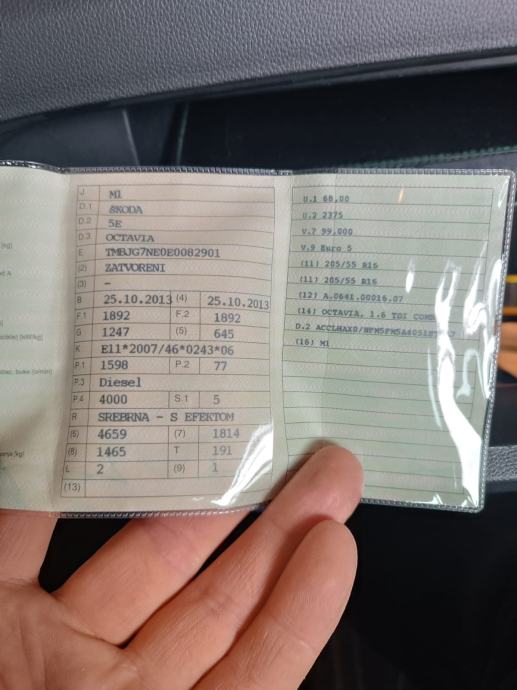 [kg]
J M1
D.1 ŠKODA
D.2 5E
D.3 OCTAVIA
E TMBJG7NE0E0082901
(2) ZATVORENI
(3) -
B 25.10.2013 (4) 25.10.2013
F.1 1892 F.2 1892
G 1247 (5) 645
K E11*2007/46*0243*06
P.1 1598 P.2 77
P.3 Diesel
P.4 4000 S.1 5
R SREBRNA - S EFEKTOM
(6) 4659 (7) 1814
(8) 1465 T 191
L 2 (9) 1
(13)
U.1 68,00
U.2 2375
V.7 99,000
V.9 Euro 5
(11) 205/55 R16
(11) 205/55 R16
(12) A.0641.00016.07
(14) OCTAVIA, 1.6 TDI
D.2
(16) M1